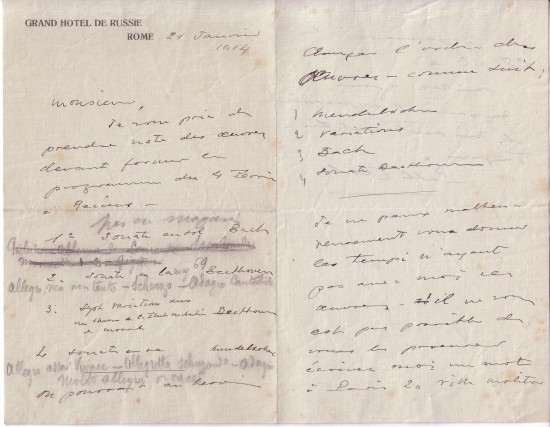 GRAND HOTEL DE RUSSIE
ROME 21 Janvier
1914
Monsieur,
Je vous prie de
prendre note des œuvres
devant former le
programme du 4 Février
à
pas en magasin
1º Sonate en sol Bach
2. Sonate en la 69 Beethoven
allegro ma non tanto – Scherzo – Adagio Cantabile
3. Sept variations sur
de Mozart Beethoven
4 Sonate en re Mendelssohn
Allegro assai Vivace – Allegretto scherzando – Adagio
molto allegro vivace
On pourrait au besoin
changer l'ordre des
Œuvres – comme suit;
1 Mendelssohn
2 Variations
3 Bach
4 Sonate Beethoven
Je ne peux malheu-
reusement vous donner
les tempi n'ayant
pas avec moi les
œuvres – s'il ne vous
est pas possible de
vous les procurer
écrivez moi un mot
à Paris 20 villa Molitor